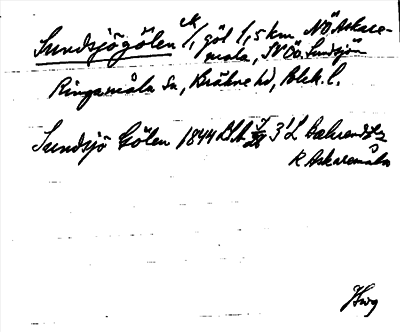 Sundsjögölen ek/, göl 1,5 km NÖ Askare-
måla, SV om Sundsjön
Ringamåla sn, Bräkne hd, Blek. l.
Sundsjö Gölen 1844 LSA 3' L
R Askaremåla
Hwg